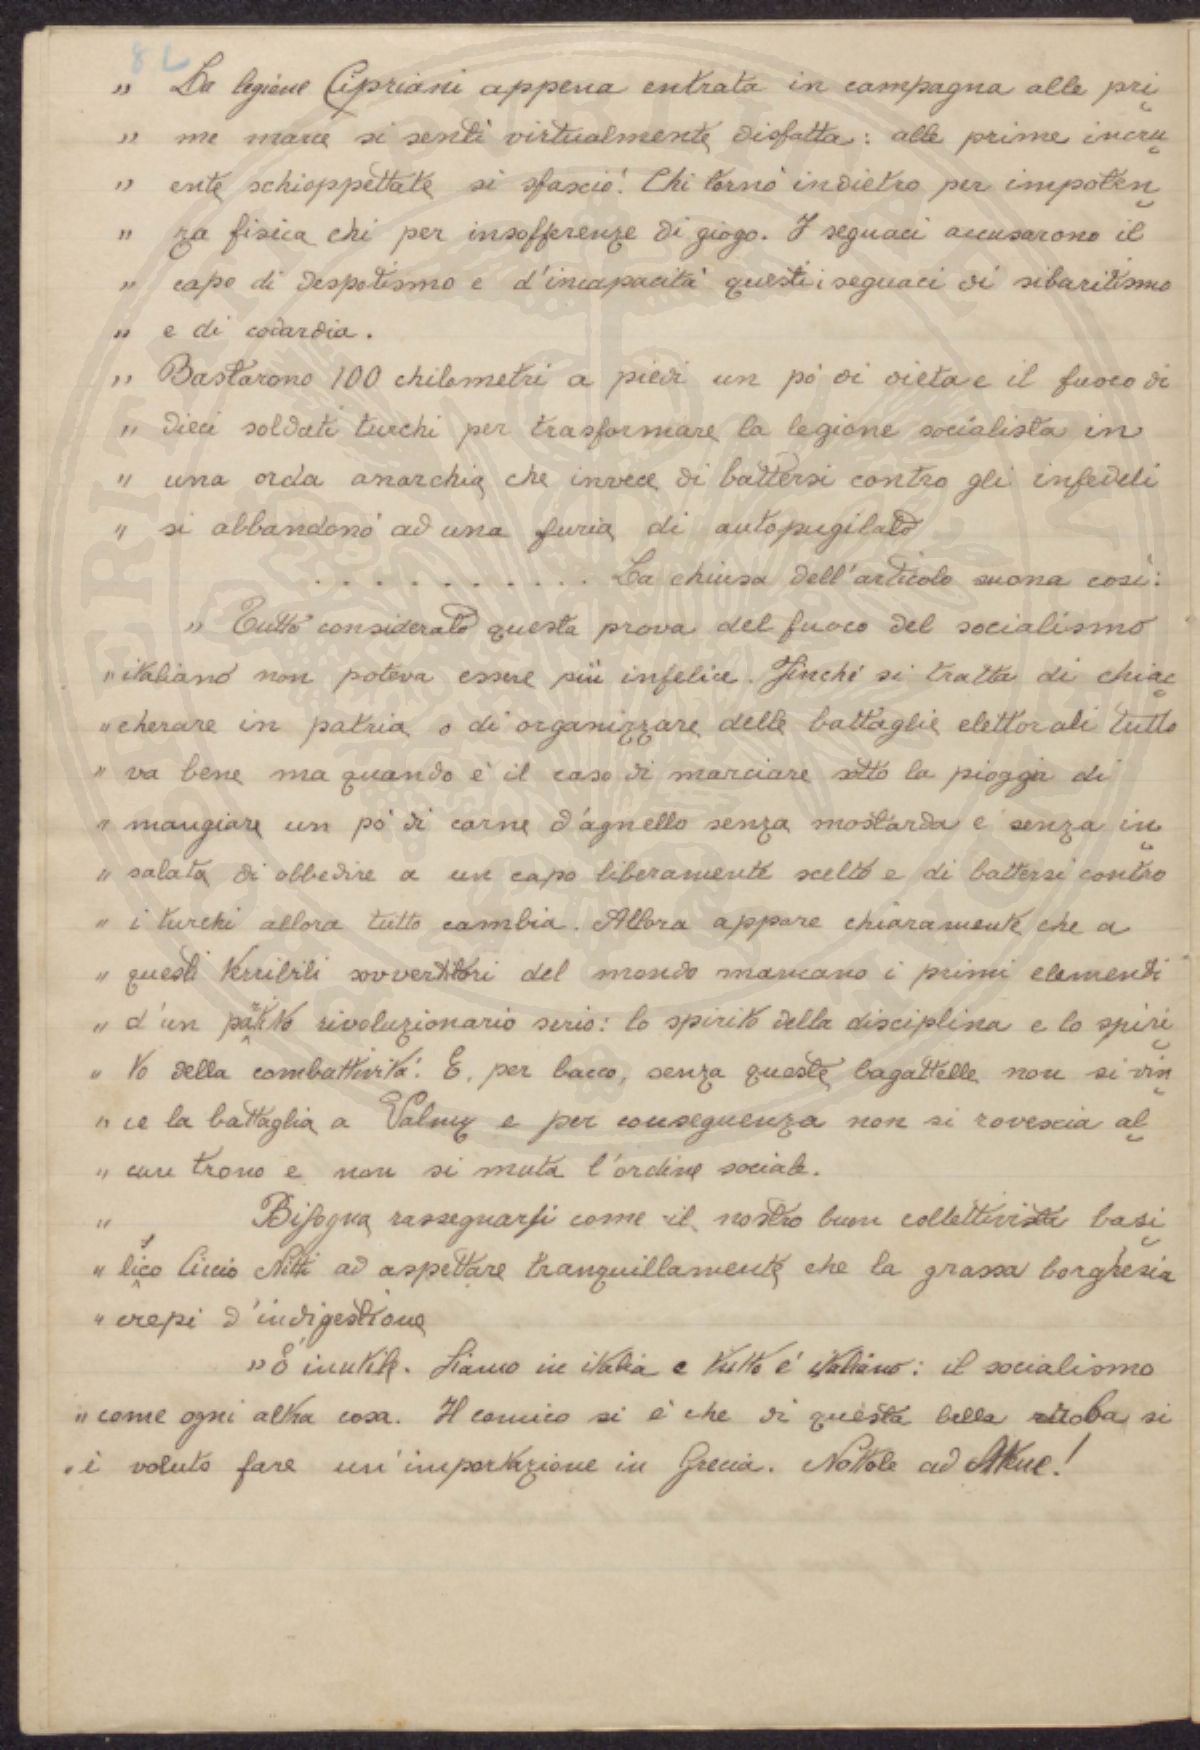 8L
„ La legione Cipriani appena entrata in campagna alle pri
„ me marce si sentì virtualmente disfatta: alle prime incru
„ ente schioppettate si sfasciò! Chi tornò indietro per impoten
„ za fisica chi per insofferenze di giogo. I seguaci accusarono il
„ capo di despotismo e d'incapacità questi i seguaci di sibaritismo
„ e di codardia.
„ Bastarono 100 chilometri a piedi un pò di dieta e il fuoco di
„ dieci soldati turchi per trasformare la legione socialista in
„ una orda anarchia che invece di battersi contro gli infedeli
„ si abbandonò ad una furia di autopugilato
. . . . . . . . . . . La chiusa dell'articolo suona così:
„ Tutto considerato questa prova del fuoco del socialismo
„ italiano non poteva essere più infelice. Finchè si tratta di chiac
„ cherare in patria o di organizzare delle battaglie elettorali tutto
„ va bene ma quando è il caso di marciare sotto la pioggia di
„ mangiare un pò di carne d'agnello senza mostarda e senza in
„ salata di obbedire a un capo liberamente scelto e di battersi contro
„ i turchi allora tutto cambia. Allora appare chiaramente che a
„ questi terribili sovvertitori del mondo mancano i primi elementi
„ d'un partito rivoluzionario serio: lo spirito della disciplina e lo spiri
„ to della combattività! E, per bacco, senza queste bagattelle non si vin
„ ce la battaglia a Valmy e per conseguenza non si rovescia al
„ cun trono e non si muta l'ordine sociale.
„ Bisogna rassegnarsi come il nostro buon collettivista basi
„ lico Ciccio Nitti ad aspettare tranquillamente che la grassa borghesia
„ crepi d'indigestione
„ È inutile. Siamo in italia e tutto è italiano: il socialismo
„ come ogni altra cosa. Il comico si è che di questa bella roba si
„ è voluto fare un'importazione in Grecia. Nottole ad Atene!